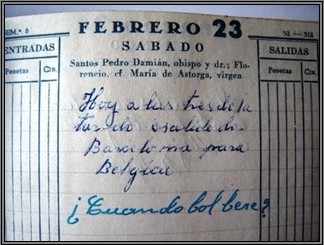 SEM.ª 8
FEBRERO 23
53 — 312
ENTRADAS
SABADO
SALIDAS
Pesetas
Cts.
Santos Pedro Damián, obispo y dr.; Flo-
rencio, cf. María de Astorga, virgen
Pesetas
Cts.
Hoy a las tres de la
tarde e salido de
Barcelona para
Belgica
¿Cuando bol bere?